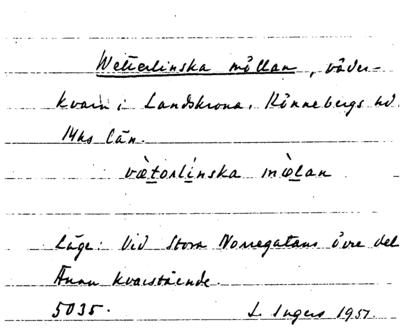 Wetterlinska möllan, väder-
kvarn i Landskrona, Rönnebergs hd.
Mhs län.
vætərlinska mölan
Läge: Vid Stora Norregatans övre del
Ännu kvarstående.
5035. L. Ingers 1951.